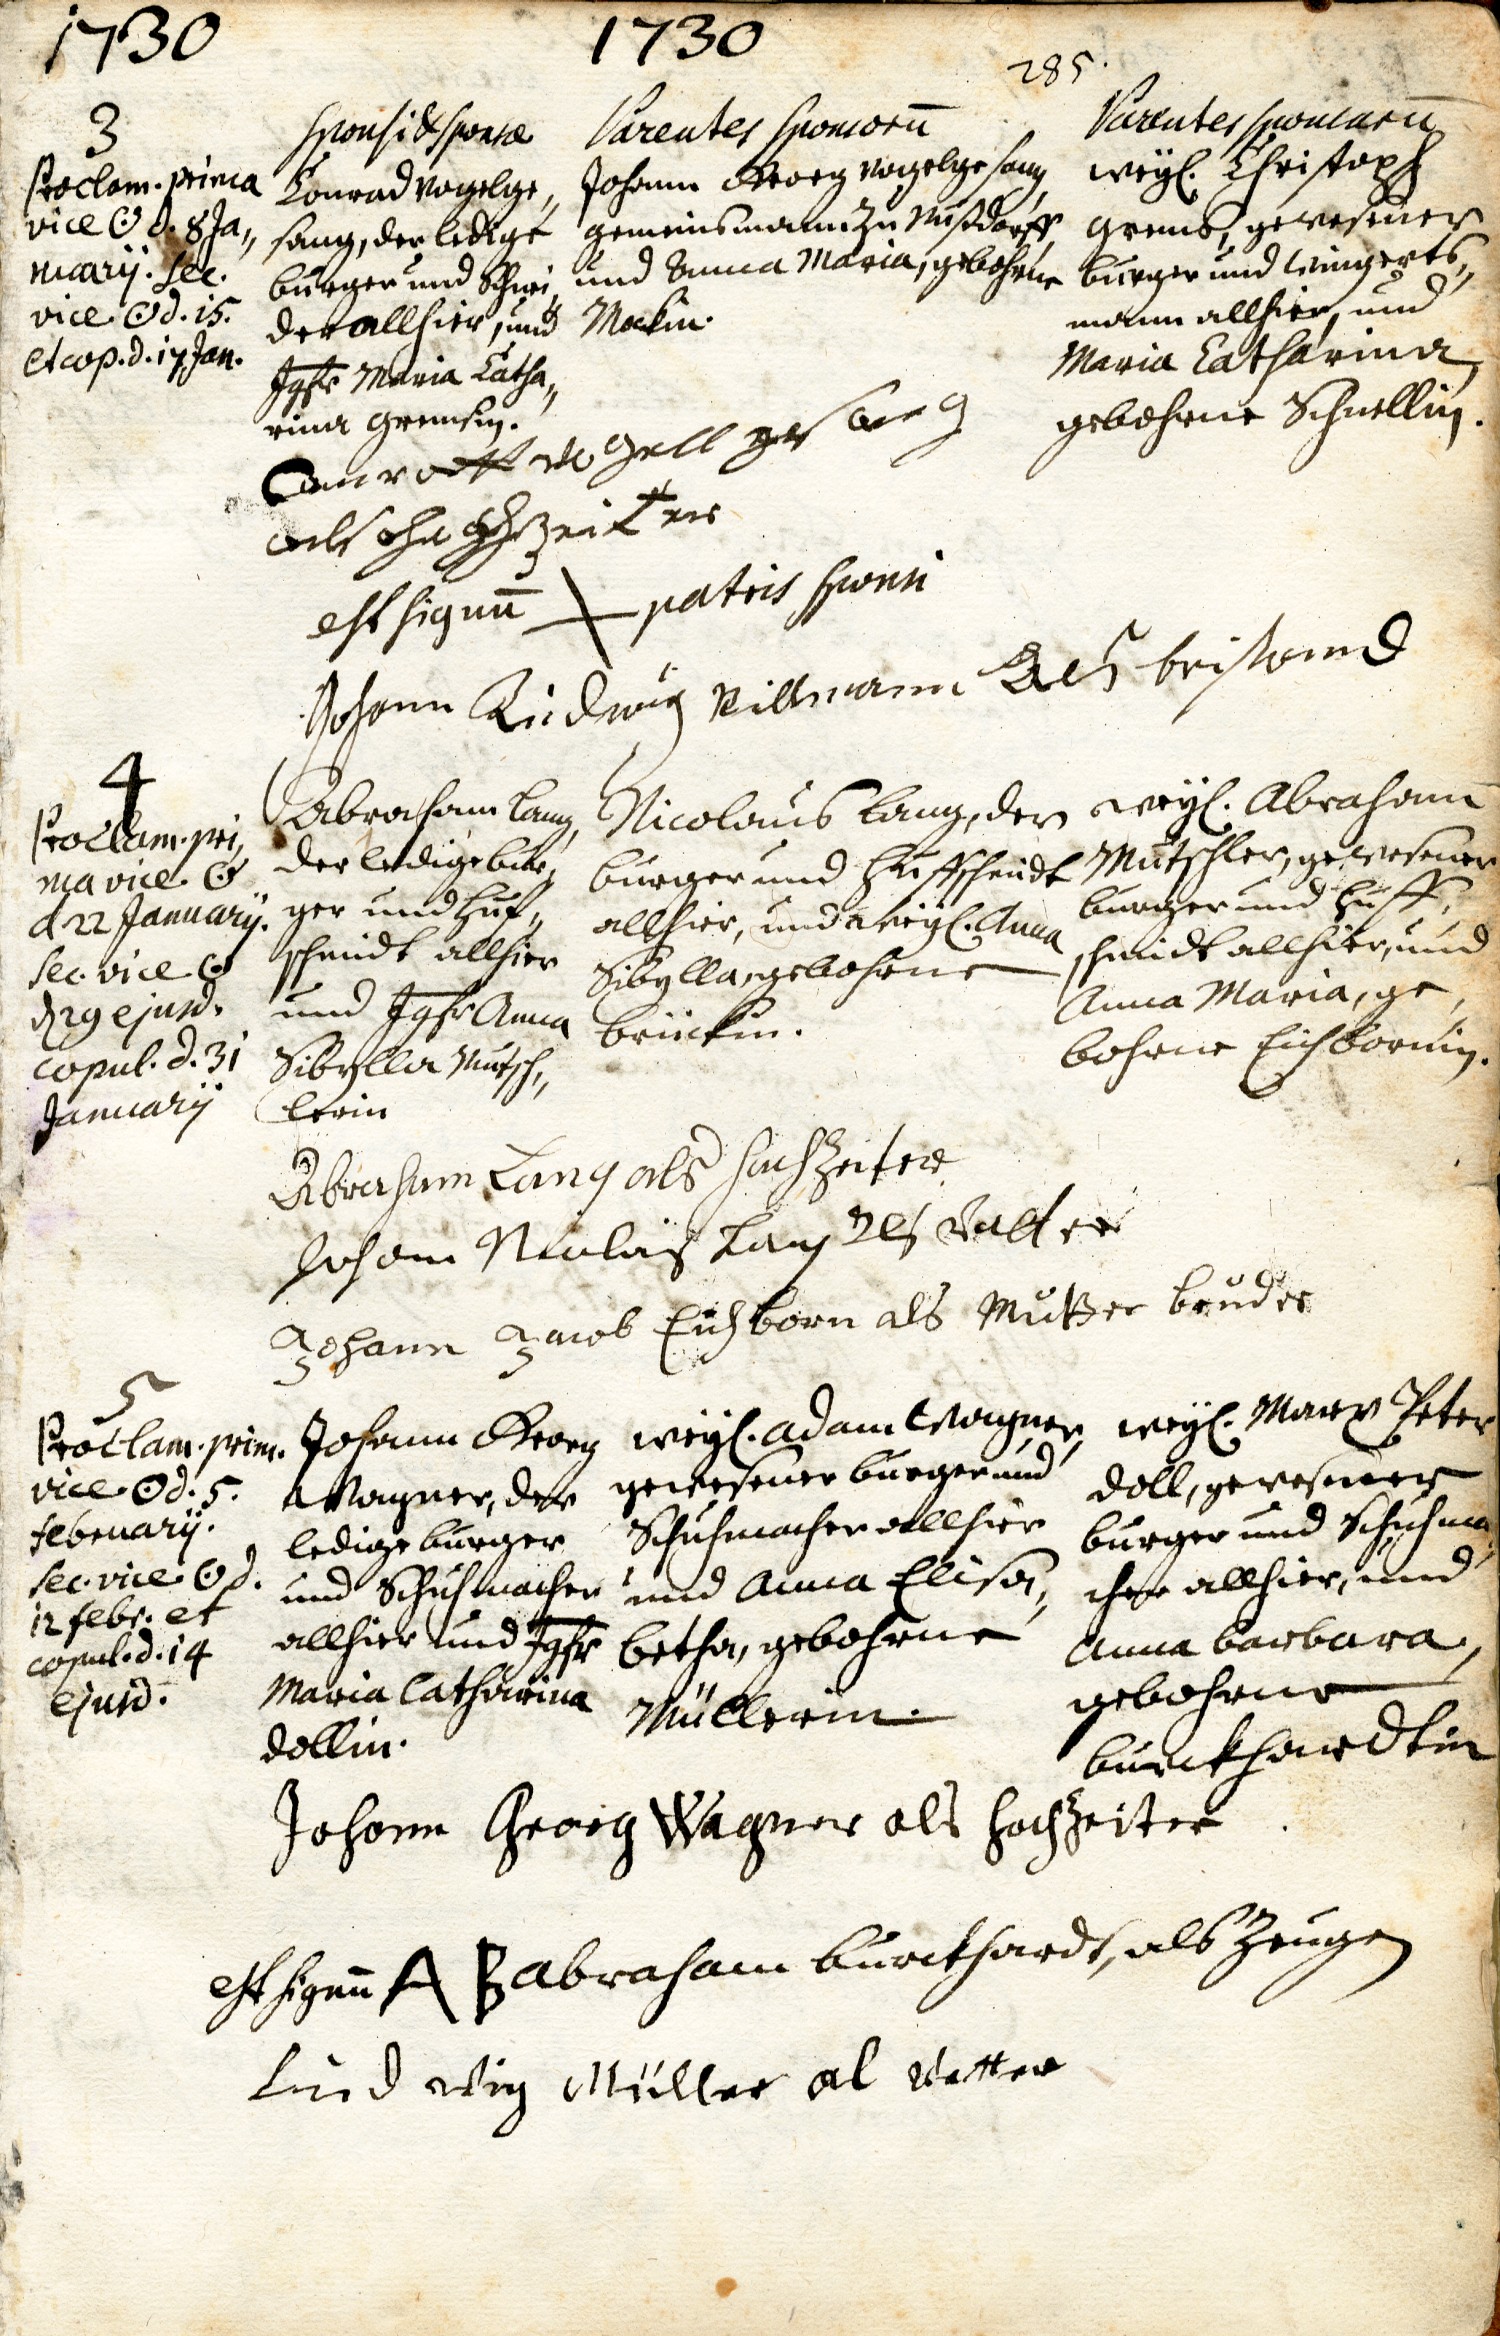 1730
1730
285.
3
Proclam. prima
vice ☉ d. 8 Ja„
nuarij. sec.
vice ☉ d. 15.
et cop. d. 17 Jan.
Sponsi & Sponsae
Conrad Vogelge„
sang, der ledige
burger und Schnei„
der allhier, und
Jgfr Maria Catha„
rina Gremsin.
Parentes Sponsorū
Johann Georg Vogelgesang,
gemeinsmann zu Nußdorff
und Anna Maria, gebohrne
Mockin.
Parentes Sponsarū
weyl. Christoph
Grems, gewesener
burger und Wingerts„
mann allhier, und
Maria Catharina,
gebohrne Schnellin.
Conratt Vogellgesang
als hochzeiter
est signū patris sponsi
Johann Ludwig Billmann als beistand
4
Proclam. pri„
ma vice ☉
d 22 Januarij.
sec. vice ☉
d 29 ejusd.
copul. d. 31
Januarij
Abraham Lang,
der ledige bur„
ger und Huf„
schmidt allhier
und Jgfr Anna
Sibylla Mutsch„
lerin
Nicolaus Lang, der
burger und Huffschmidt
allhier, und weyl. Anna
Sibylla, gebohrne
brückin.
weyl. Abraham
Mutschler, gewesener
burger und Huff„
schmidt allhier, und
Anna Maria, ge„
bohrne Eichbornin.
Abraham Lang als hochzeiter
Johann Nicolaus Lang als Vatter
Johann Jacob Eichborn als Mutter bruder
5
Proclam. prim.
vice ☉ d. 5.
Februarij.
sec. vice ☉ d.
12 Febr. et
copul. d. 14
ejusd.
Johann Georg
Wagner, der
ledige burger
und Schuhmacher
allhier und Jgfr
Maria Catharina
Dollin.
weyl. Adam Wagner,
gewesener burger und
Schuhmacher allhier
und Anna Elisa„
betha, gebohrne
Müllerin.
weyl. Marx Peter
Doll, gewesener
burger und Schuhma„
cher allhier, und
Anna Barbara,
gebohrne
burckhardtin
Johann Georg Wagner als hochzeiter
est signū A B Abraham burckhardt, als Zeuge
Ludwig Müller al Vetter